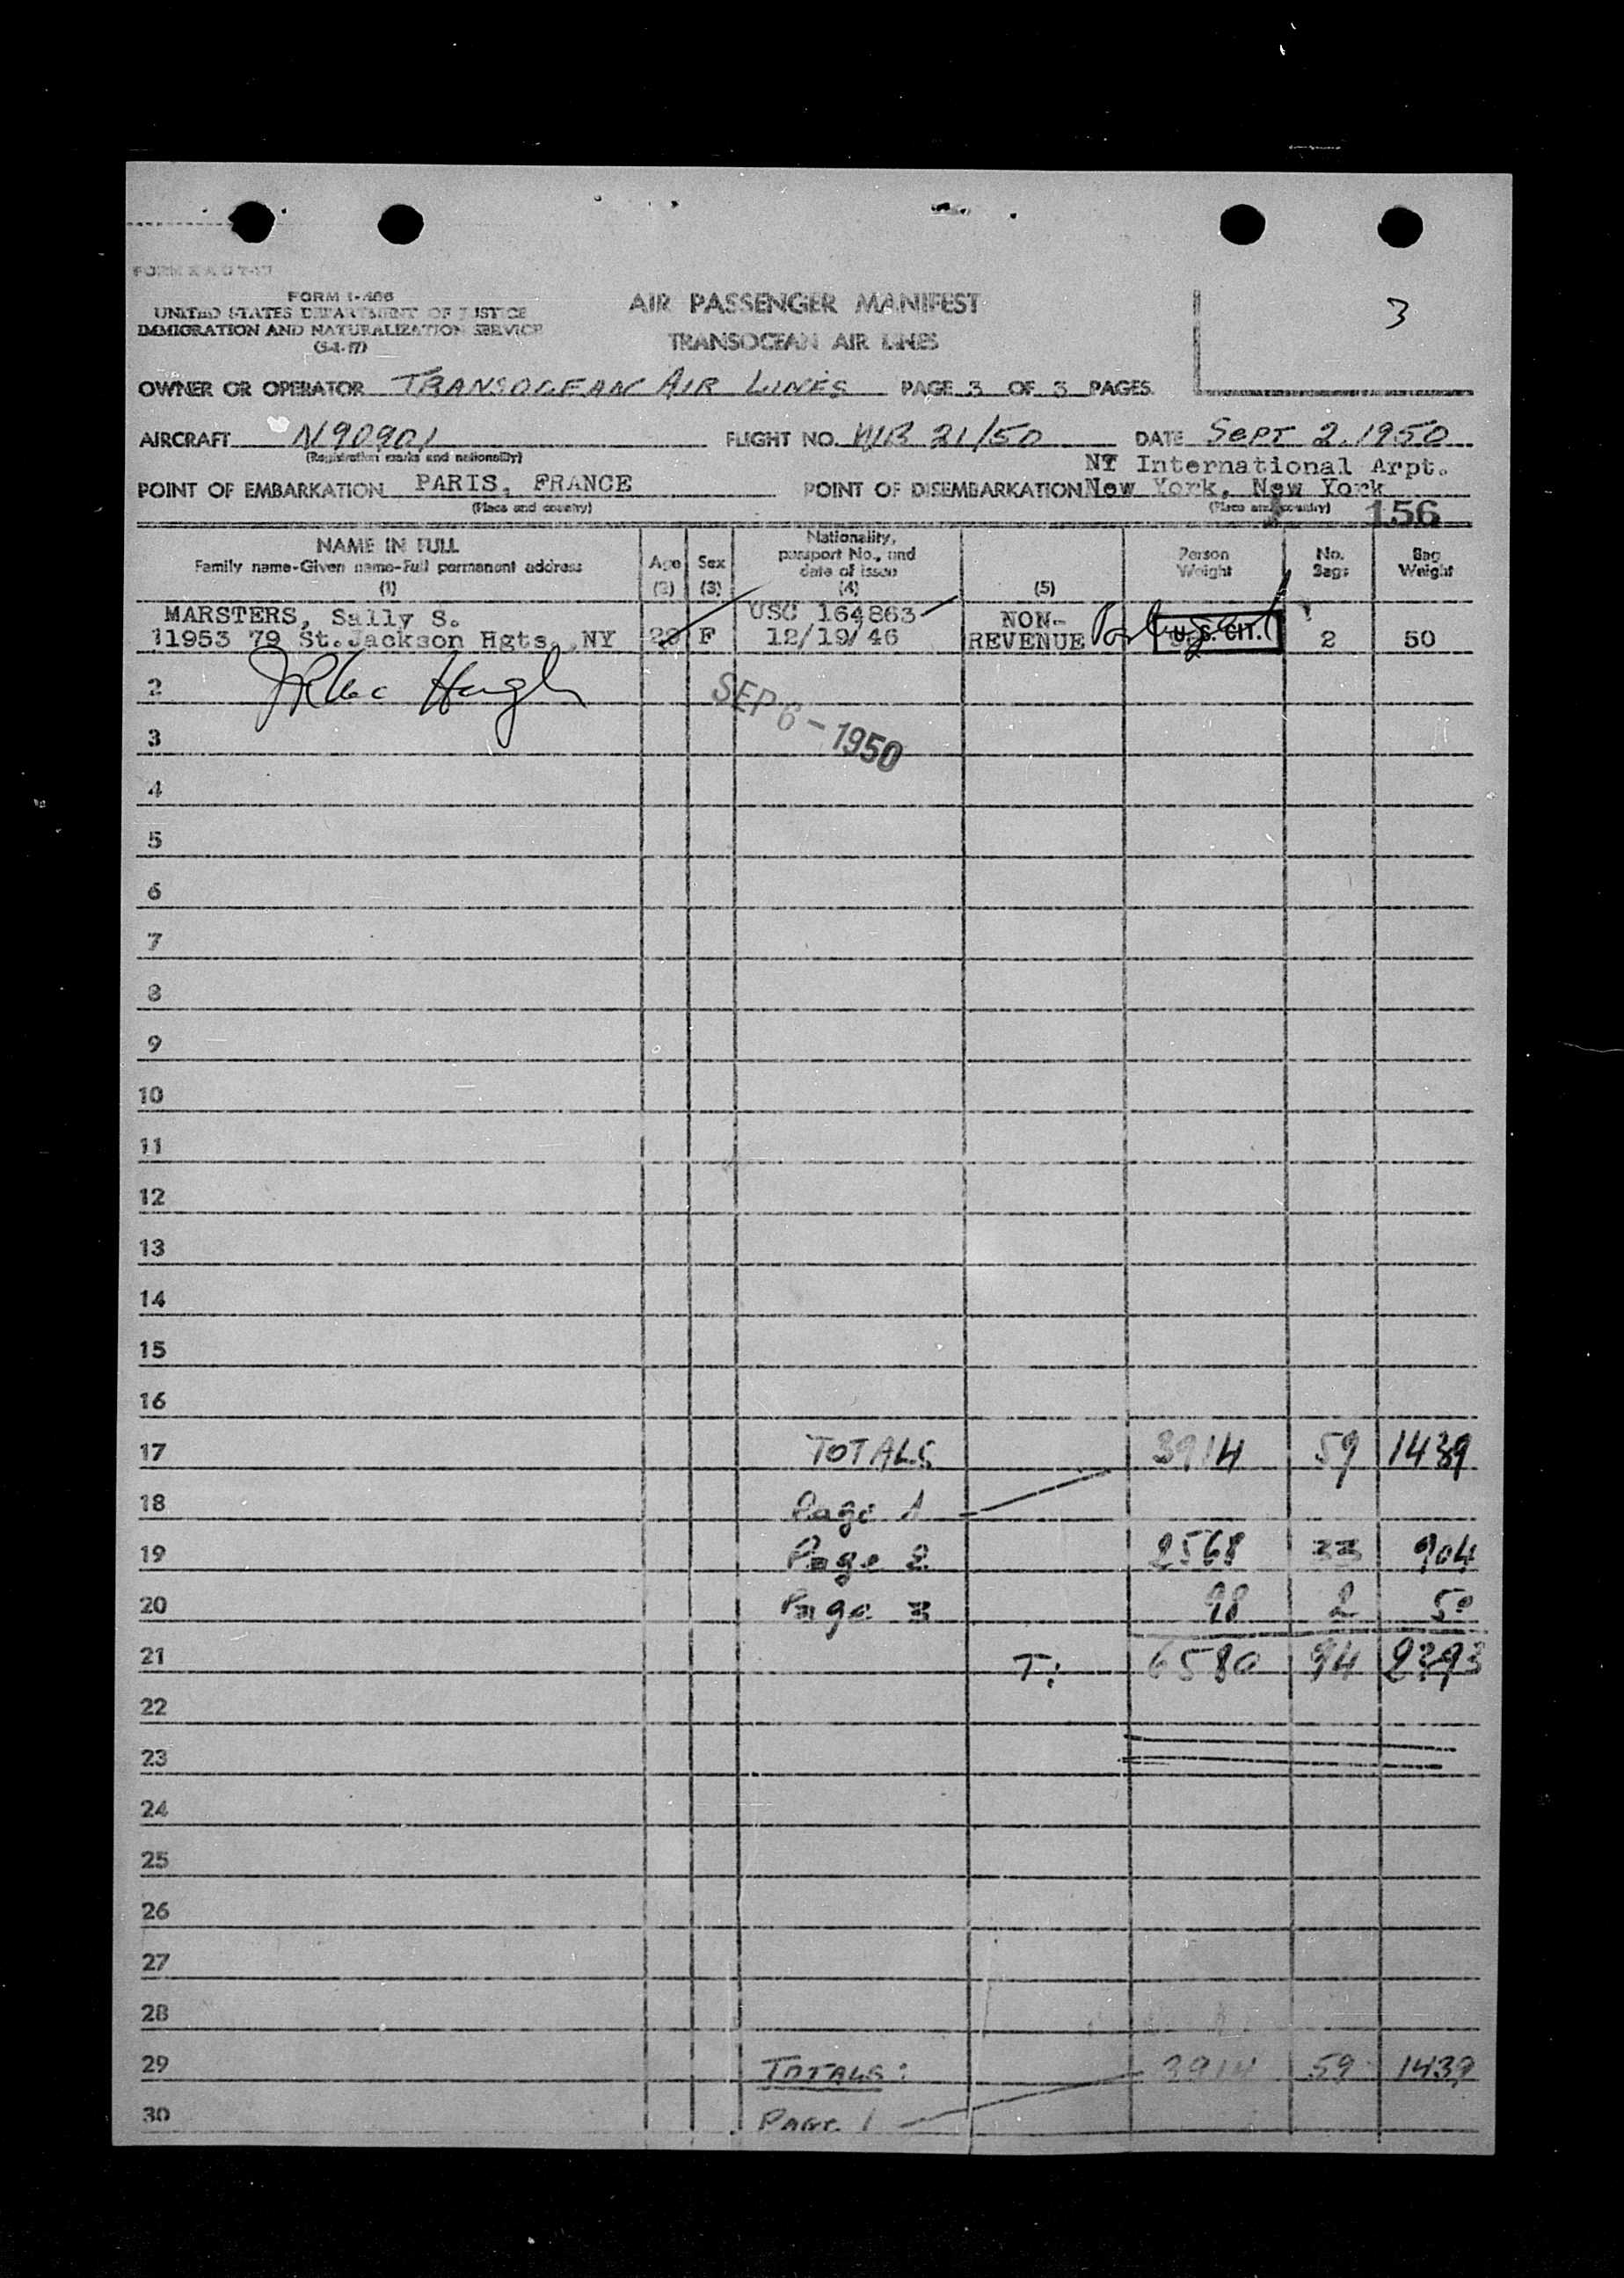 FORM I-466
UNITED STATES DEPARTMENT OF JUSTICE
IMMIGRATION AND NATURALIZATION SERVICE
AIR PASSENGER MANIFEST
TRANSOCEAN AIR LINES
3
OWNER OR OPERATOR TRANSOCEAN AIR LINES PAGE 3 OF 3 PAGES
AIRCRAFT N90901 FLIGHT NO. 21/50 DATE SEPT 2, 1950
(Registration marks and nationality)
NY International Arpt.
POINT OF EMBARKATION PARIS, FRANCE POINT OF DISEMBARKATION New York, New York
(Place and country) (Place and country) 156
NAME IN FULL Age Sex Nationality, passport No., and date of issue Person Weight No. Bags Bag Weight
Family name-Given name-Full permanent address
(1) (2) (3) (4) (5)
MARSTERS, Sally S. USC 164863 NON-
11953 79 St. Jackson Hgts., NY F 12/19/46 REVENUE U.S. CIT. 2 50
2
SEP 6 - 1950
3
4
5
6
7
8
9
10
11
12
13
14
15
16
17 TOTALS 3914 59 1439
18 Page 1
19 Page 2 2568 33 904
20 Page 3 98 2 50
21 T: 6580 94 2393
22
23
24
25
26
27
28
29 TOTALS: 3914 59 1439
30 PAGE 1